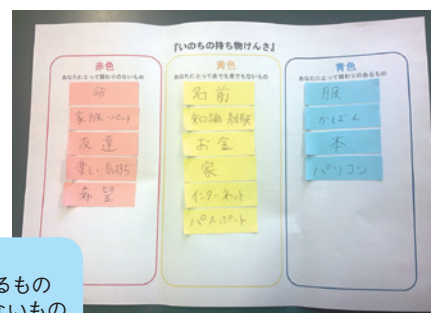 『いのちの持ち物けんさ』
赤色
あなたにとって替わりのないもの
命
家族・ペット
友達
楽しい気持ち
希望
黄色
あなたにとって赤でも青でもないもの
名前
知識・経験
お金
家
インターネット
パスポート
青色
あなたにとって替わりのあるもの
服
かばん
本
パソコン
るもの
ないもの